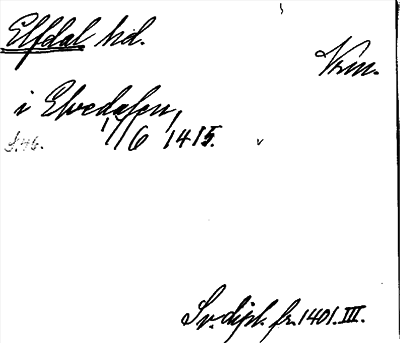 Elfdal hd.
Vrm.
i Elvedalen,
17/6 1415.
S.46.
Sv. dipl. fr. 1401. III.